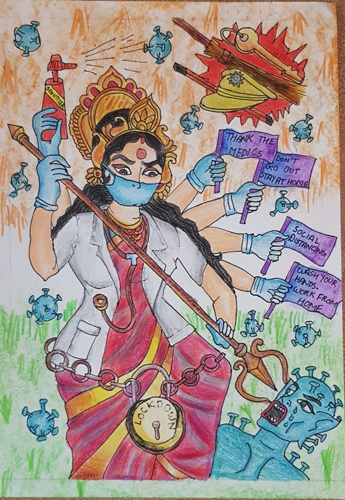 THANK THE
MEDICS
DON'T
GO OUT
STAY AT HOME
SOCIAL
DISTANCING
WASH YOUR
HANDS.
WORK FROM
HOME
LOCKDOWN